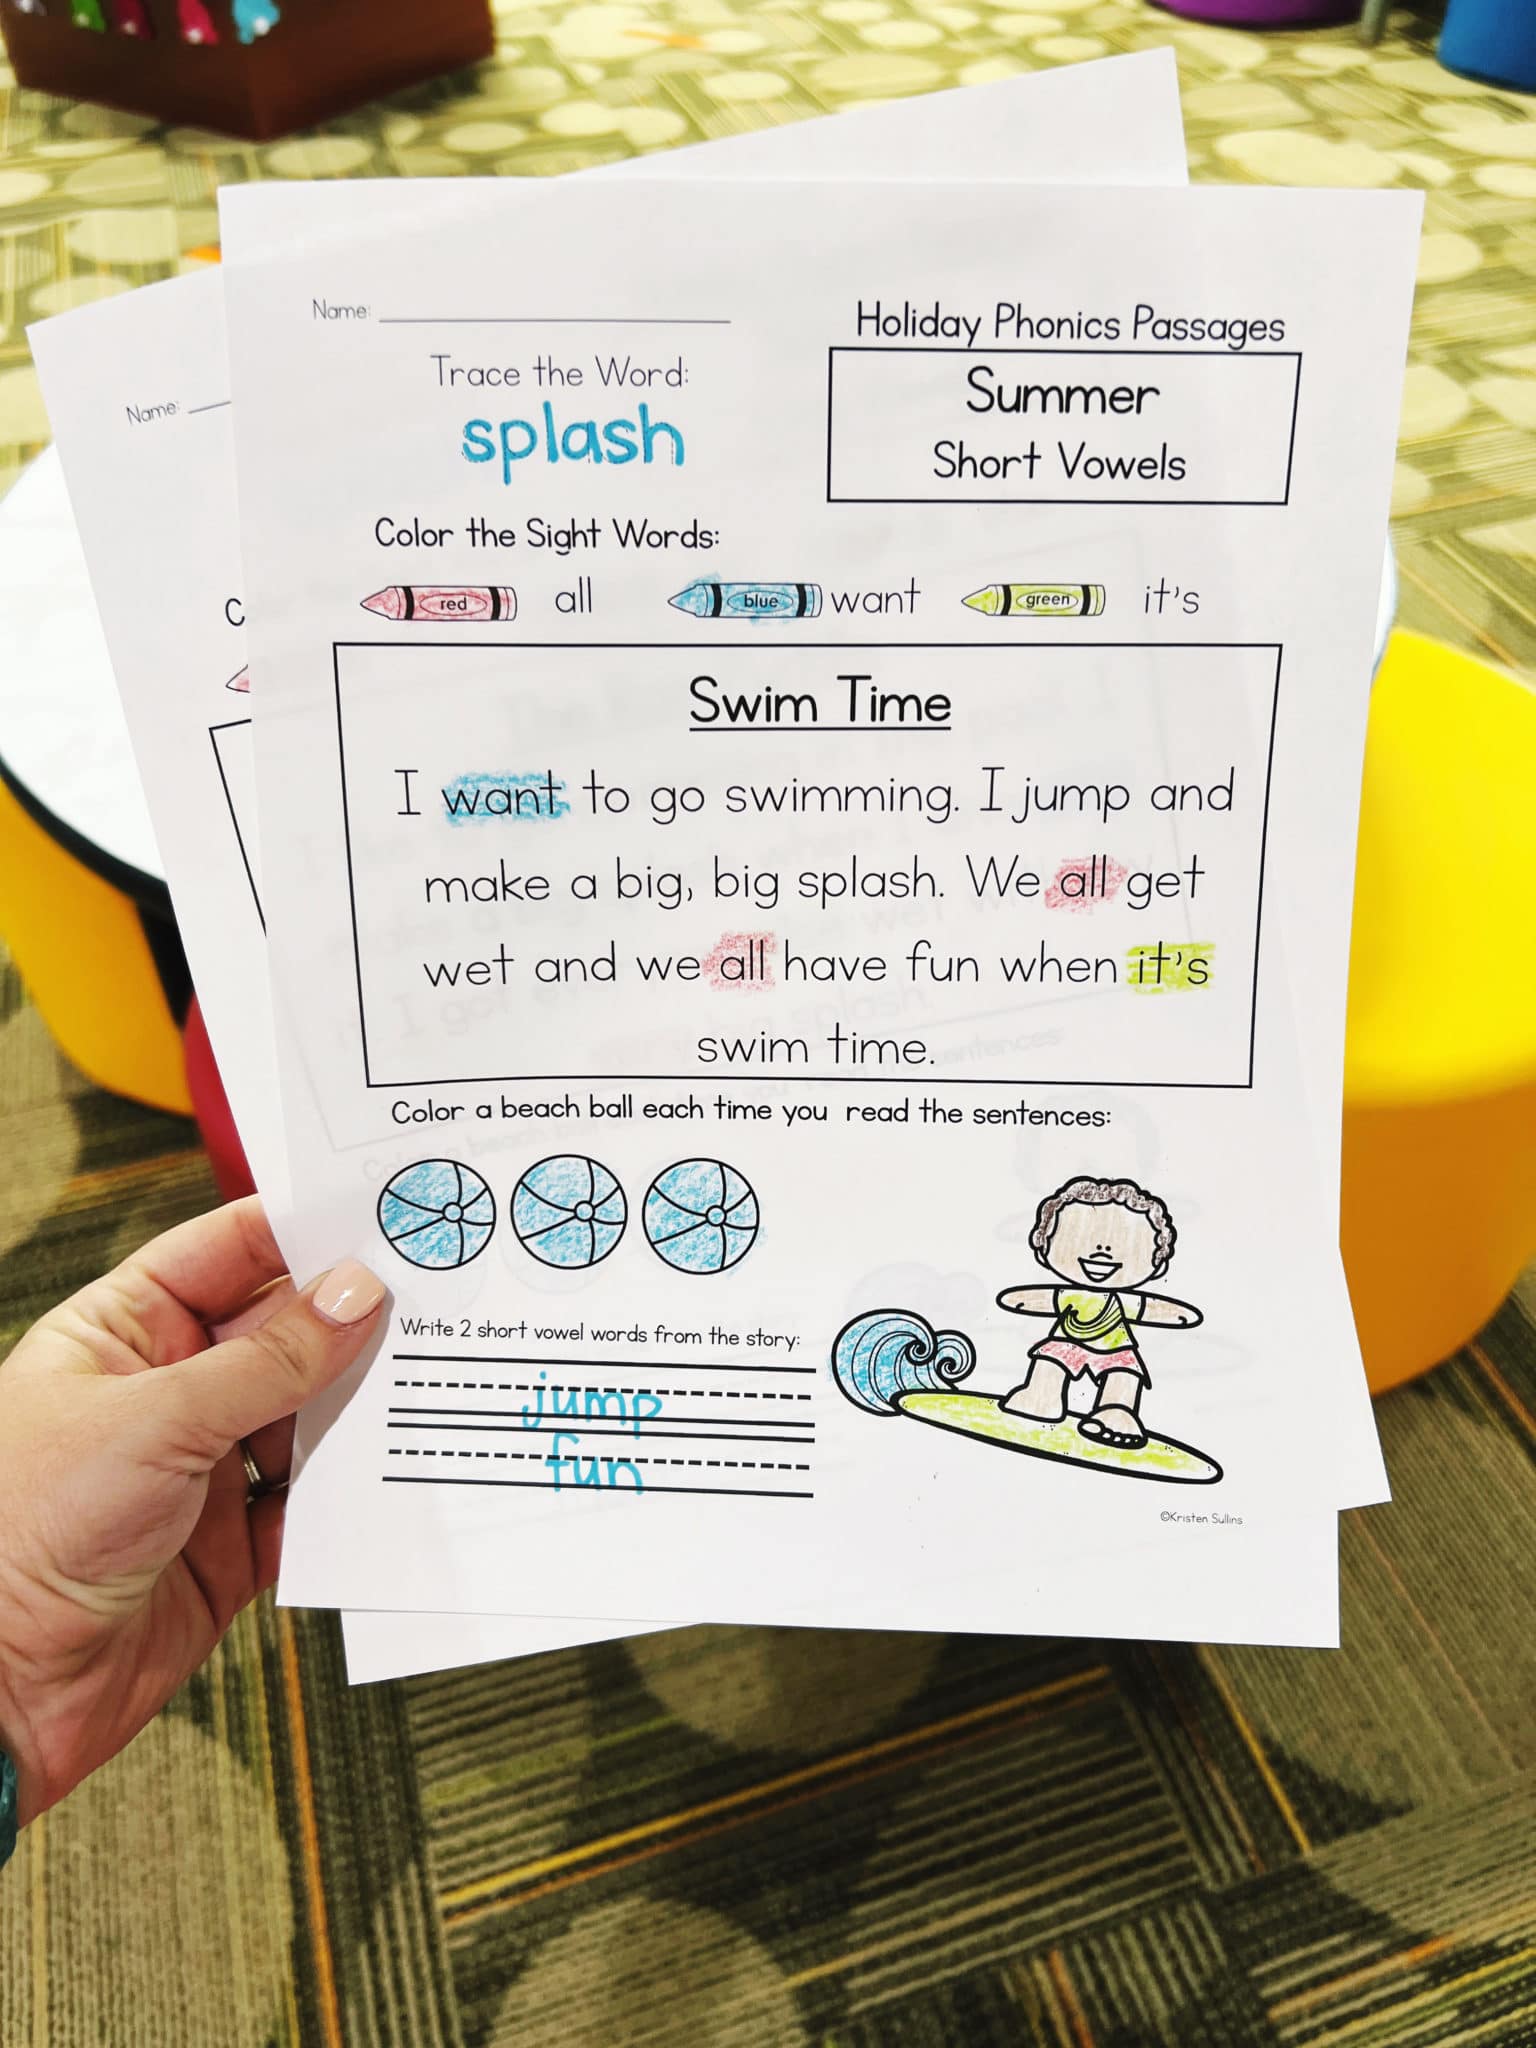 Name:
Holiday Phonics Passages
Trace the Word:
splash
Summer
Short Vowels
Color the Sight Words:
red all blue want green it's
Swim Time
I want to go swimming. I jump and
make a big, big splash. We all get
wet and we all have fun when it's
swim time.
Color a beach ball each time you read the sentences:
Write 2 short vowel words from the story:
jump
fun
©Kristen Sullins
Name:
C